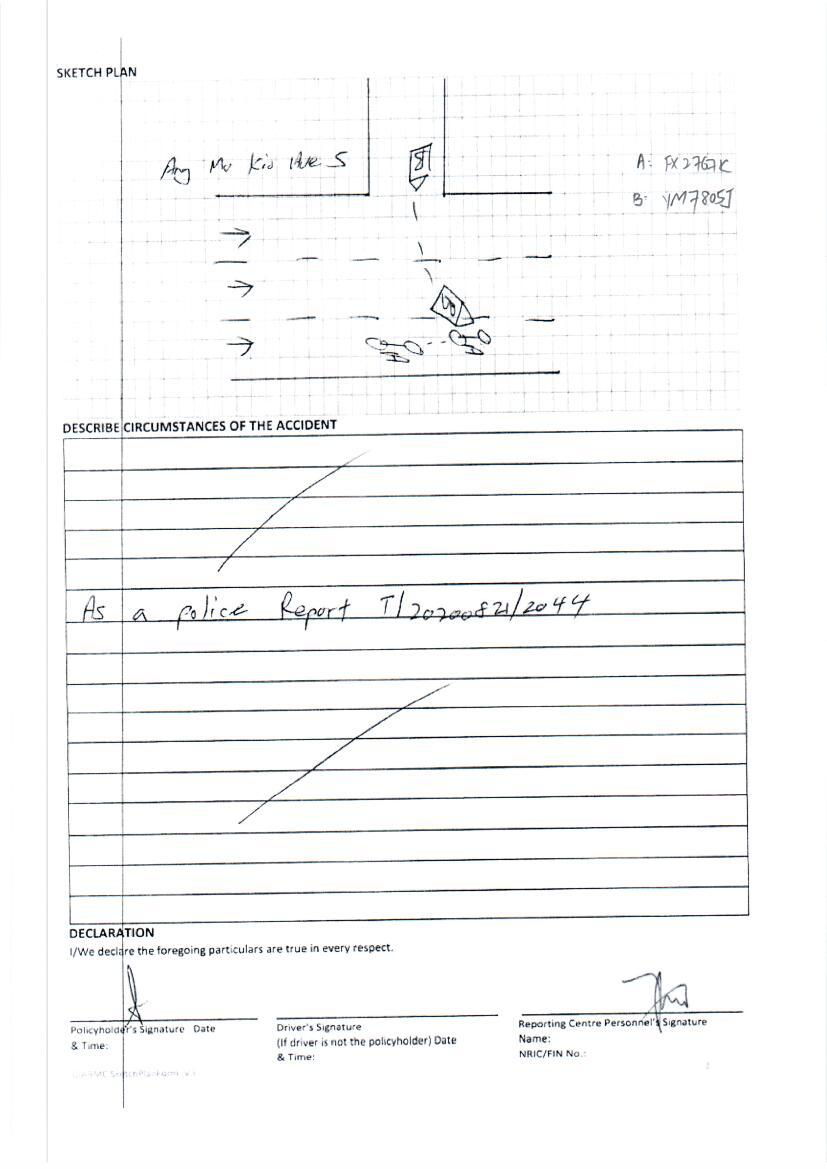 SKETCH PLAN
Ang Mo Kio Ave 5
B
A: FX2767K
B: YM7805J
B
A
A
DESCRIBE CIRCUMSTANCES OF THE ACCIDENT
As a police Report T/20200821/2044
DECLARATION
I/We declare the foregoing particulars are true in every respect.
Policyholder's Signature Date
& Time:
Driver's Signature
(If driver is not the policyholder) Date
& Time:
Reporting Centre Personnel's Signature
Name:
NRIC/FIN No.: